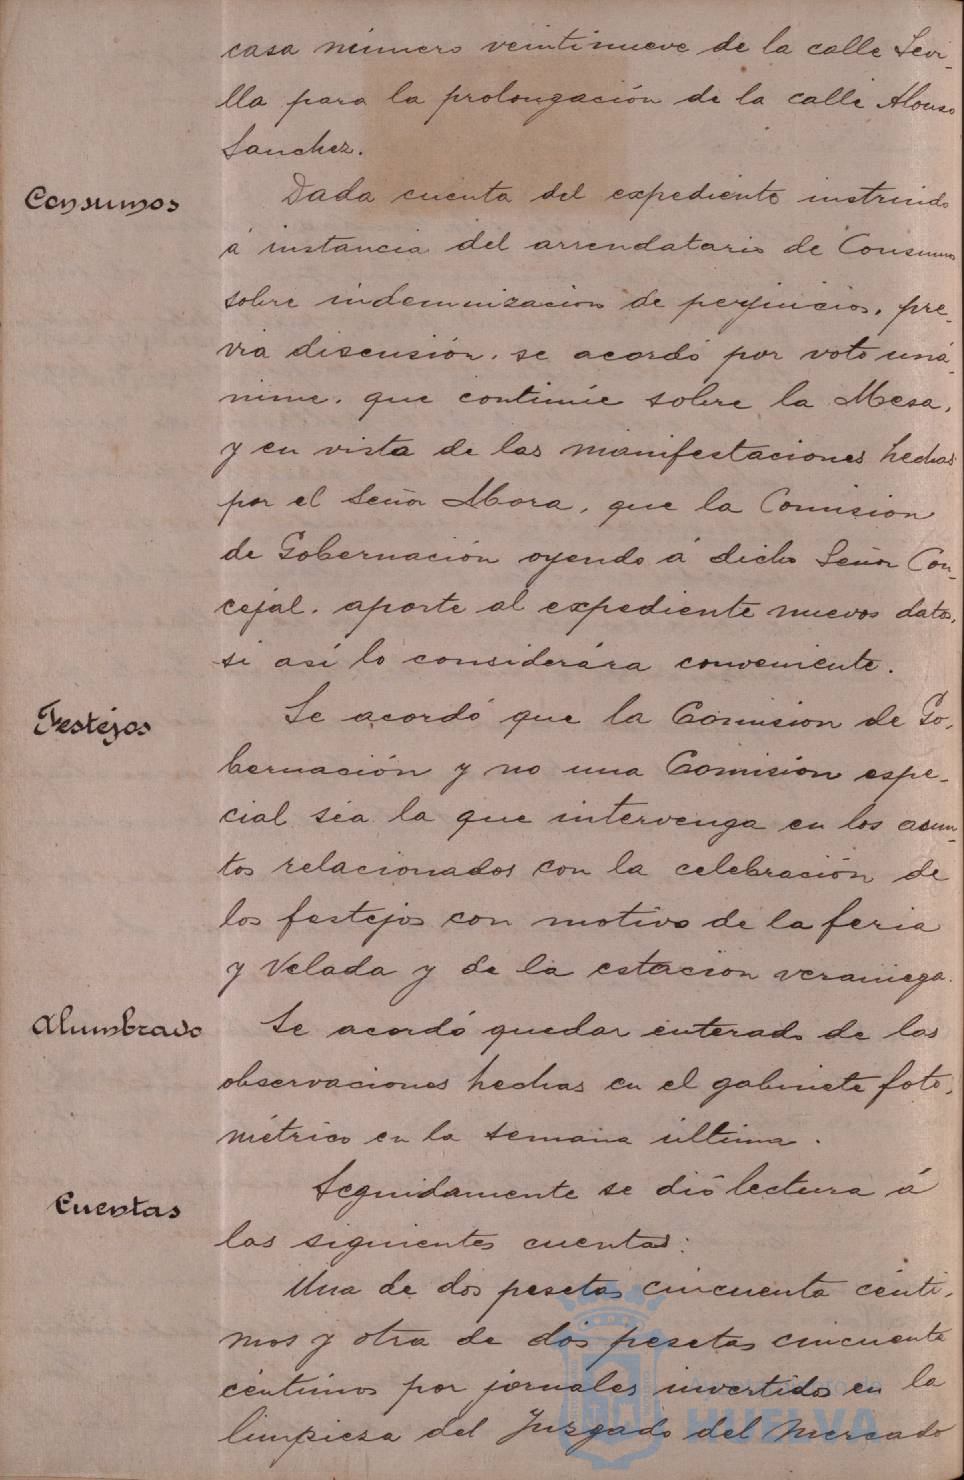 casa número veintinueve de la calle Sevi-
lla para la prolongación de la calle Alonso
Sanchez.
Consumos
Dada cuenta del expediente instruido
á instancia del arrendatario de Consumos
sobre indemnizacion de perjuicios, pre-
via discusión, se acordó por voto uná-
nime, que continúe sobre la Mesa,
y en vista de las manifestaciones hechas
por el Señor Mora, que la Comision
de Gobernación oyendo á dicho Señor Con-
cejal, aporte al expediente nuevos datos,
si así lo considerára conveniente.
Festejos
Se acordó que la Comision de Go-
bernación y no una Comisión espe-
cial sea la que intervenga en los asun-
tos relacionados con la celebración de
los festejos con motivo de la feria
y Velada y de la estacion veraniega.
Alumbrado
Se acordó quedar enterado de las
observaciones hechas en el gabinete foto-
métrico en la semana última.
Cuentas
Seguidamente se dió lectura á
las siguientes cuentas:
Una de dos pesetas cincuenta cénti-
mos y otra de dos pesetas cincuenta
céntimos por jornales invertidos en la
limpieza del Juzgado del Mercado
Ayuntamiento de
HUELVA